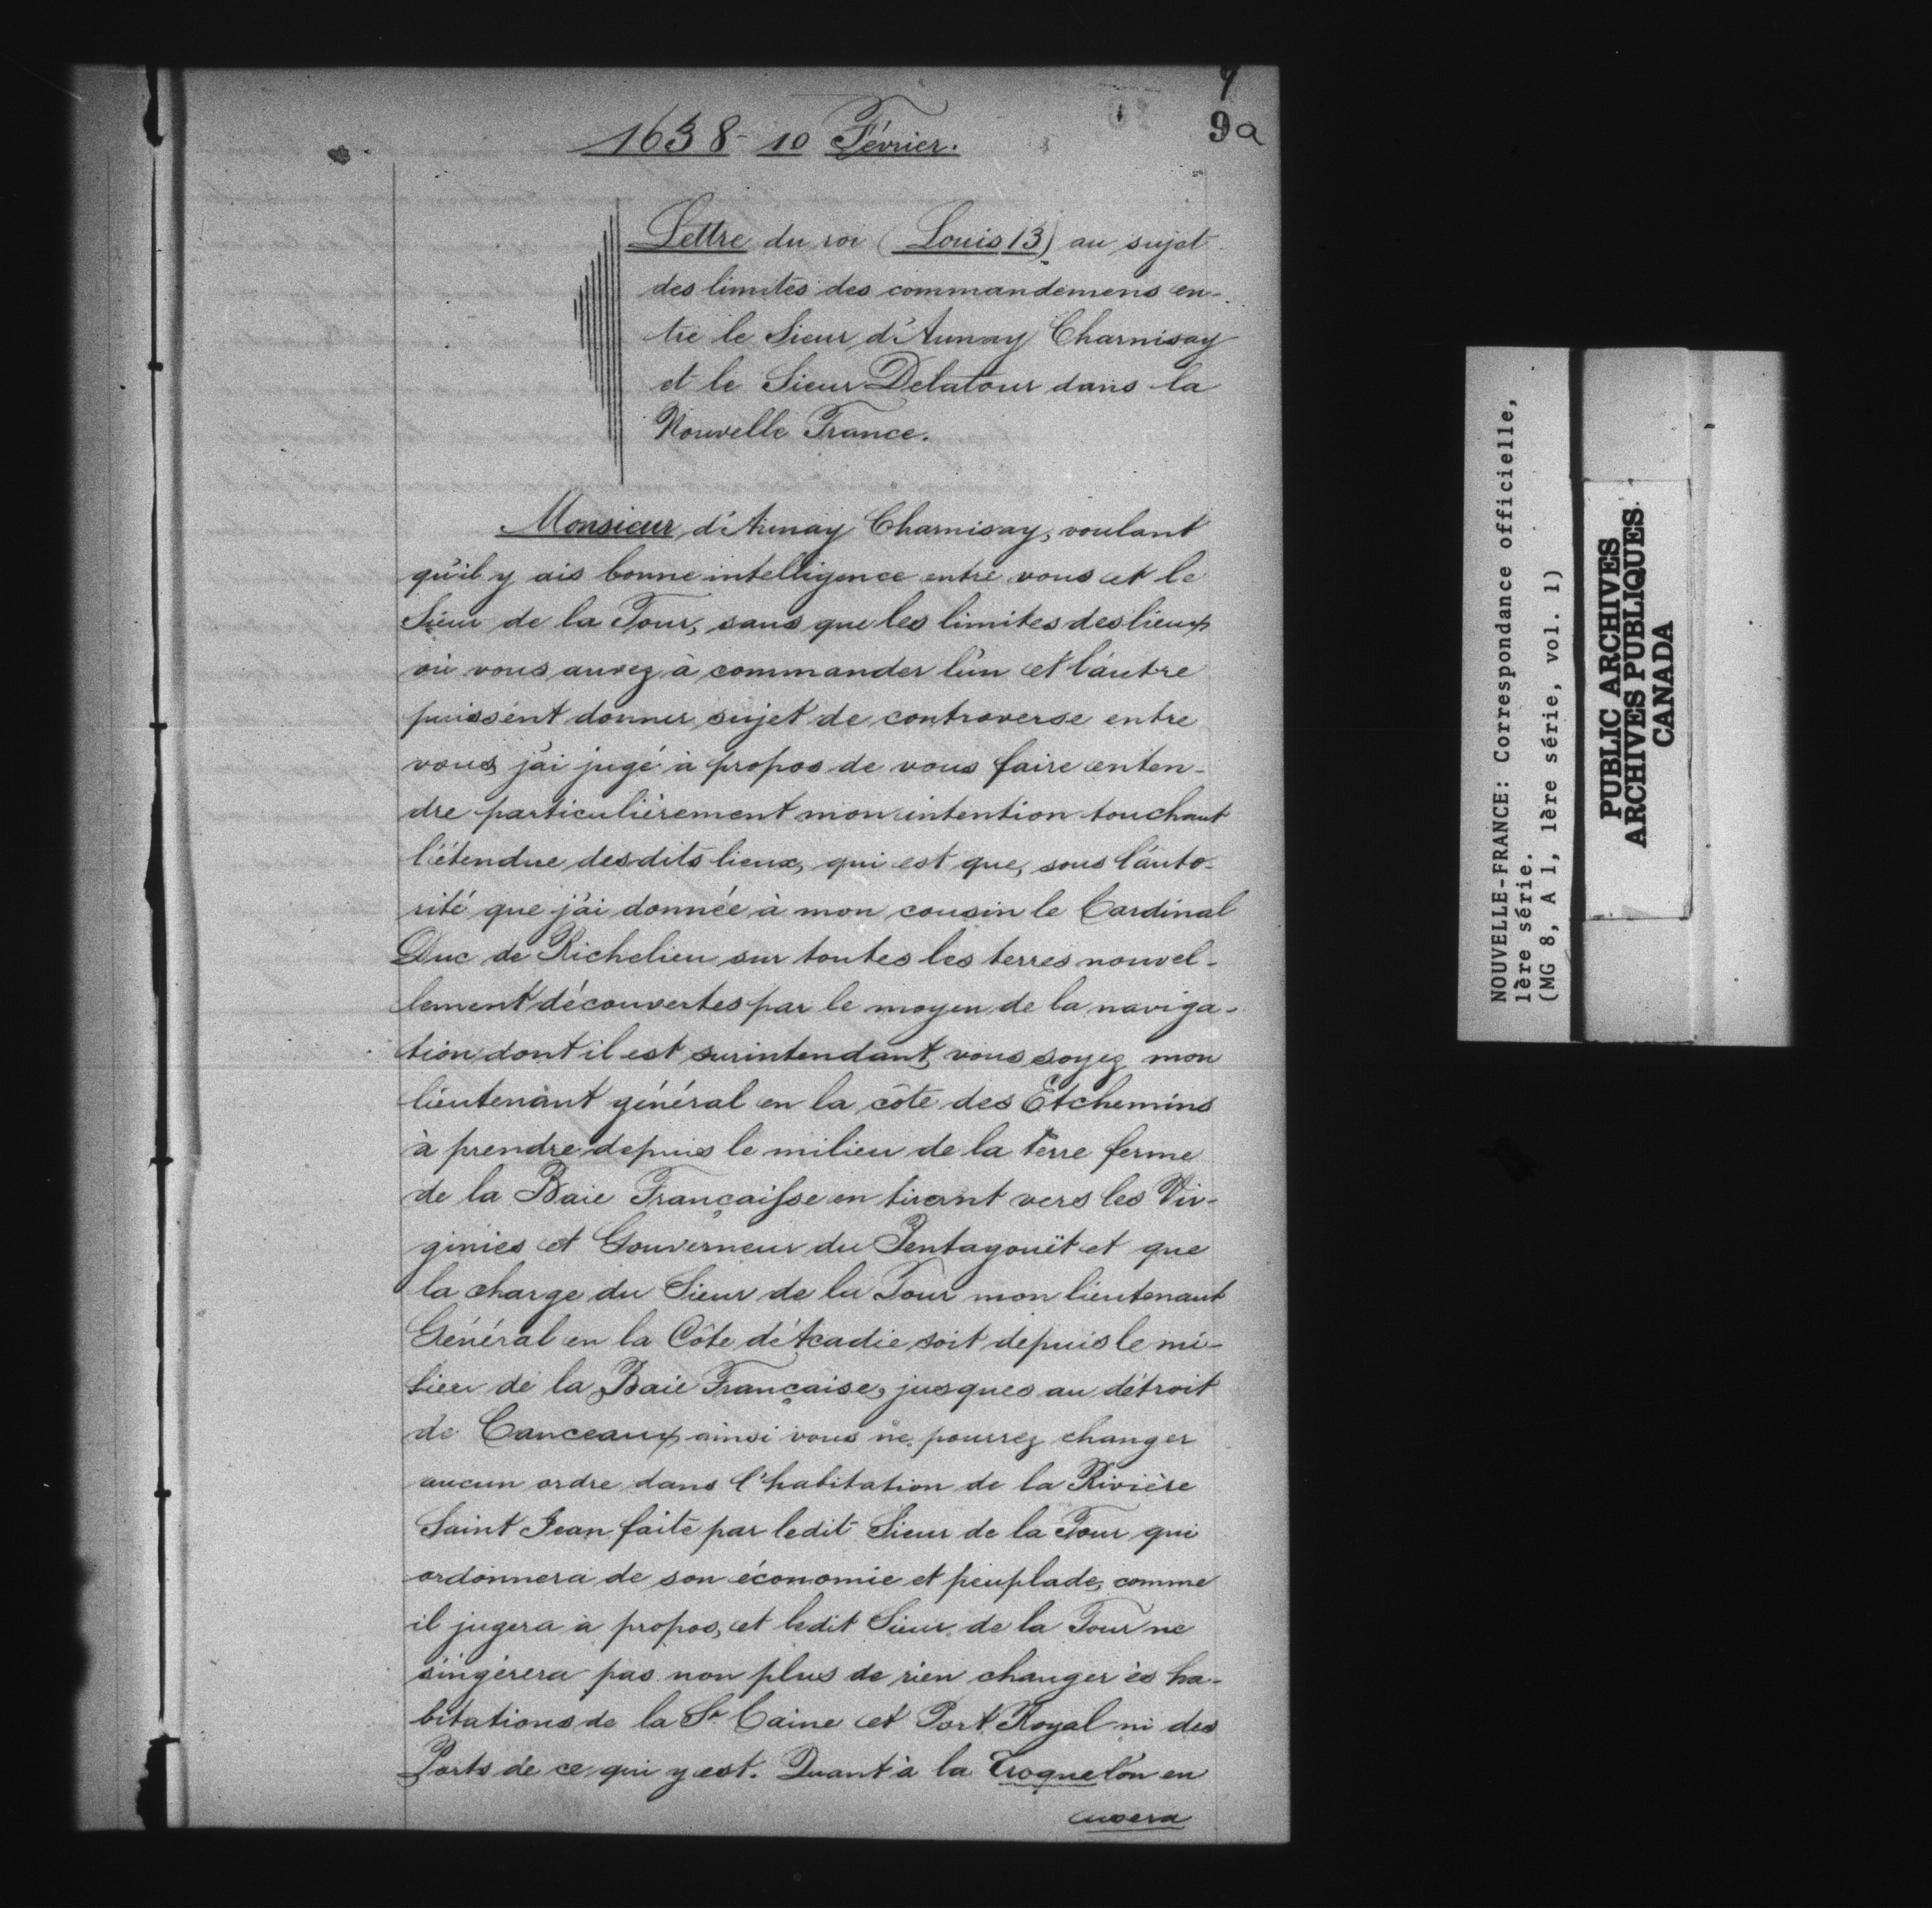 9
9a
1638 - 10 Février.
Lettre du roi (Louis 13) au sujet
des limites des commandemens en-
tre le Sieur d'Aunay Charnisay
et le Sieur Delatour dans la
Nouvelle France.
Monsieur d'Aunay Charnisay, voulant
qu'il y ais bonne intelligence entre vous et le
Sieur de la Tour, sans que les limites des lieux
où vous aurez à commander l'un et l'autre
puissent donner sujet de controverse entre
vous, j'ai jugé à propos de vous faire enten-
dre particulièrement mon intention touchant
l'étendue desdits lieux, qui est que, sous l'auto-
rité que j'ai donnée à mon cousin le Cardinal
Duc de Richelieu sur toutes les terres nouvel-
lement découvertes par le moyen de la naviga-
tion dont il est surintendant, vous soyez mon
lieutenant général en la côte des Etchemins
à prendre depuis le milieu de la terre ferme
de la Baie Françaisse en tirant vers les Vir-
ginies et Gouverneur du Pentagouët et que
la charge du Sieur de la Tour mon lieutenant
Général en la Côte d'Acadie soit depuis le mi-
lieu de la Baie Française, jusques au détroit
de Canceaux ainsi vous ne pourrez changer
aucun ordre dans l'habitation de la Rivière
Saint Jean faite par ledit Sieur de la Tour qui
ordonnera de son économie et peuplade, comme
il jugera à propos, et ledit Sieur de la Tour ne
s'ingérera pas non plus de rien changer ès ha-
bitations de la Se Caine et Port Royal ni des
Ports de ce qui y est. Quant à la troque l'on en
usera
NOUVELLE-FRANCE: Correspondance officielle,
1ère série.
(MG 8, A 1, 1ère série, vol. 1)
PUBLIC ARCHIVES
ARCHIVES PUBLIQUES
CANADA